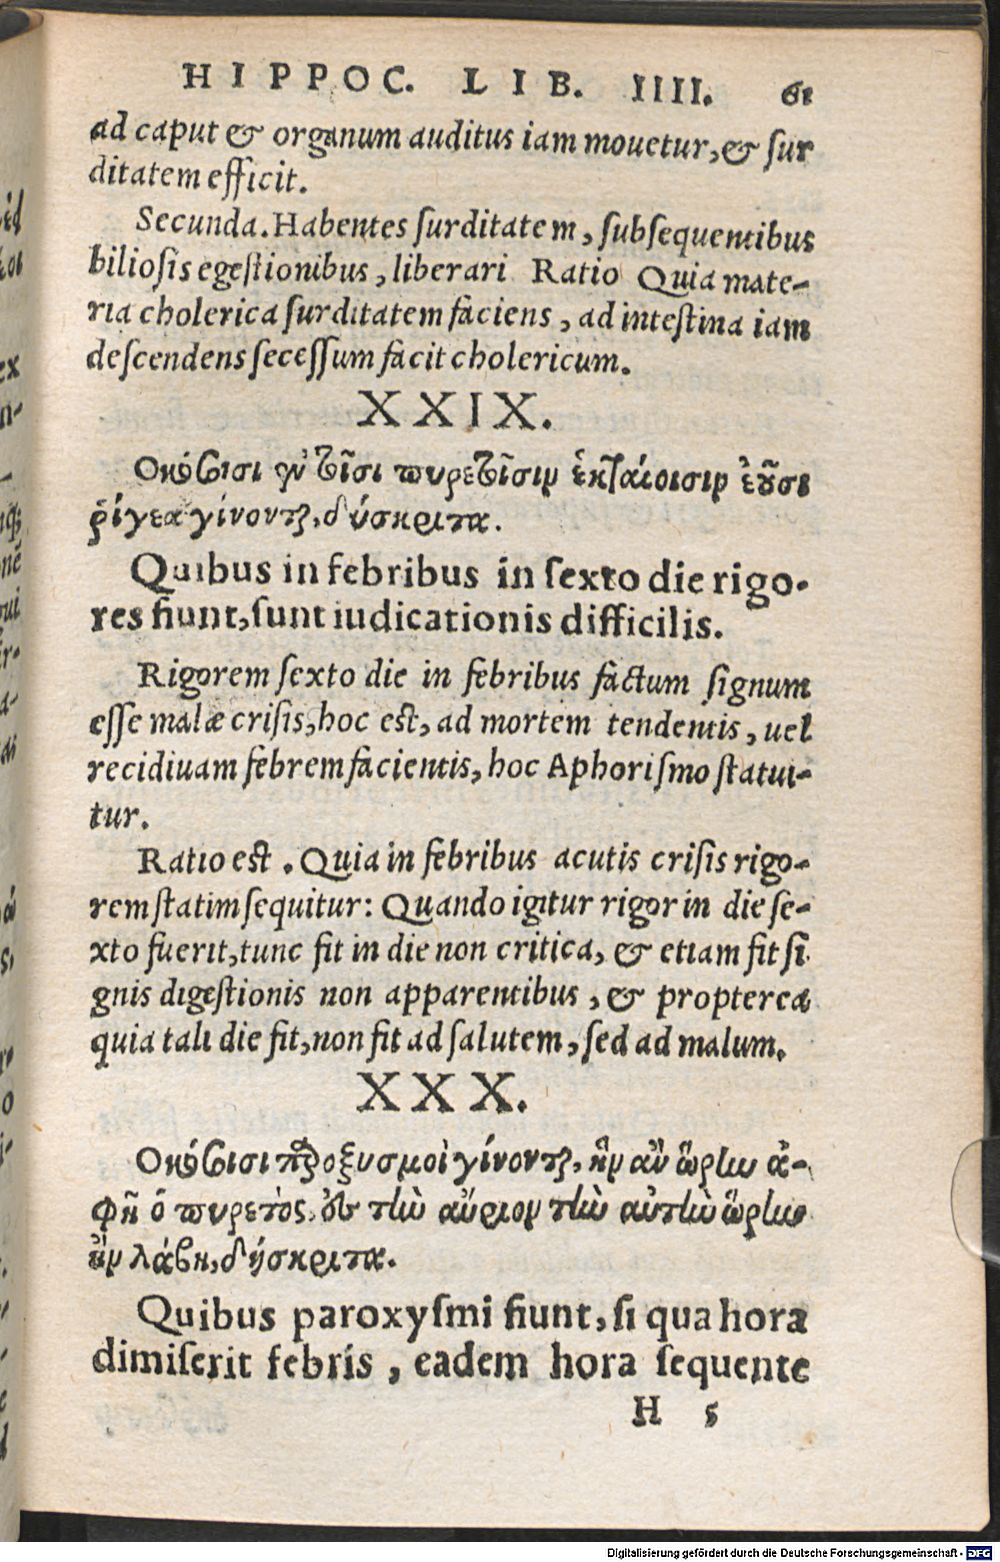 HIPPOC. LIB. IIII. 61
ad caput & organum auditus iam mouetur, & ſur
ditatem efficit.
Secunda. Habentes ſurditatem, ſubſequentibus
bilioſis egeſtionibus, liberari Ratio Quia mate-
ria cholerica ſurditatem faciens, ad inteſtina iam
deſcendens ſeceſſum facit cholericum.
XXIX.
Οκόσοισι ἐν τοῖσι πυρετοῖσιν ἑκταίοισιν ἐοῦσι
ῥίγεα γίνονται, δύσκριτα.
Quibus in febribus in ſexto die rigo-
res fiunt, ſunt iudicationis difficilis.
Rigorem ſexto die in febribus factum ſignum
eſſe malæ criſis, hoc eſt, ad mortem tendentis, uel
recidiuam febrem facientis, hoc Aphoriſmo ſtatui-
tur.
Ratio eſt. Quia in febribus acutis criſis rigo-
rem ſtatim ſequitur: Quando igitur rigor in die ſe-
xto fuerit, tunc fit in die non critica, & etiam fit ſi
gnis digeſtionis non apparentibus, & propterea
quia tali die fit, non fit ad ſalutem, ſed ad malum.
XXX.
Οκόσοισι παροξυσμοὶ γίνονται, ἢν ἂν ὥρην ἀ-
φῆ ὁ πυρετὸς, ἐς τὴν αὔριον τὴν αὐτὴν ὥρην
ἢν λάβη, δύσκριτα.
Quibus paroxyſmi fiunt, ſi qua hora
dimiſerit febris, eadem hora ſequente
H 5
Digitalisierung gefördert durch die Deutsche Forschungsgemeinschaft - DFG